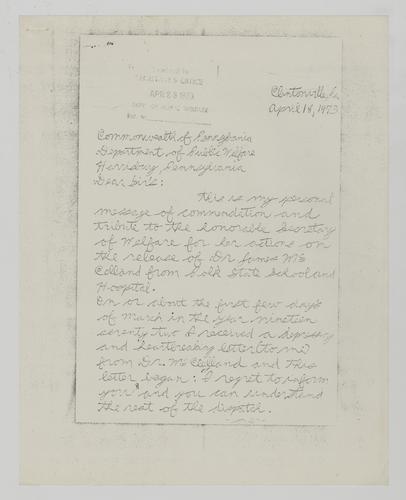 SECRETARY'S OFFICE
APR 23 1973
DEPT. OF PUBLIC WELFARE
Clintonville, Pa.
April 18, 1973
Commonwealth of Pennsylvania
Department of Public Welfare
Harrisburg, Pennsylvania
Dear Sirs:
This is my personal
message of commendation and
tribute to the honorable Secretary
of Welfare for her actions on
the release of Dr James Mc
Clelland from Polk State School and
Hospital.
On or about the first few days
of March in the year nineteen
seventy two I received a depressy
and heartbreaky letter (to me)
from Dr. McClelland and this
letter began: "I regret to inform
you" and you can understand
the rest of the dispatch.